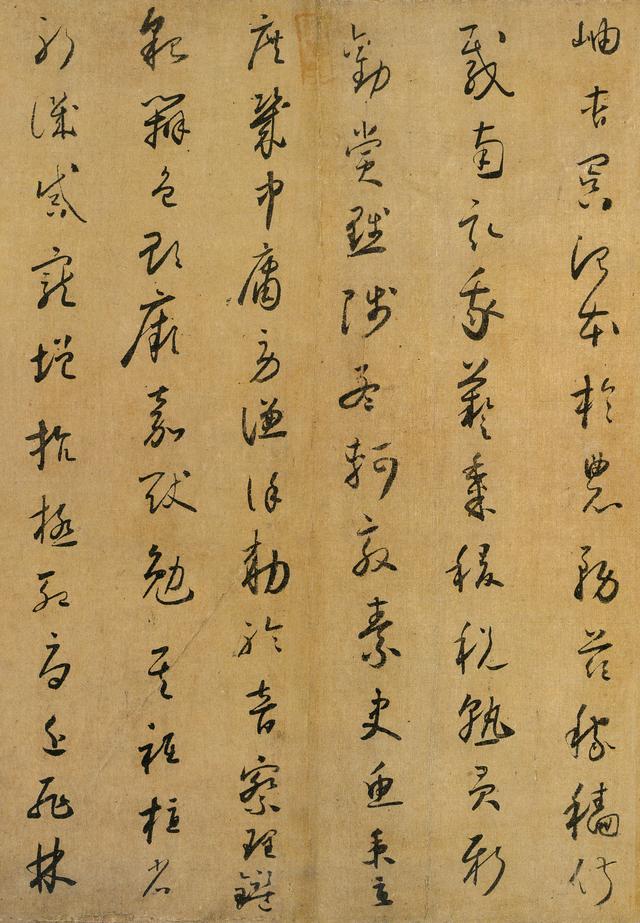 岫杳冥治本於農務茲稼穡俶
載南畝我藝黍稷稅熟貢新
勸賞黜陟孟軻敦素史魚秉直
庶幾中庸勞謙謹勅聆音察理鑑
貌辨色貽厥嘉猷勉其祗植省
躬譏誡寵增抗極殆辱近恥林